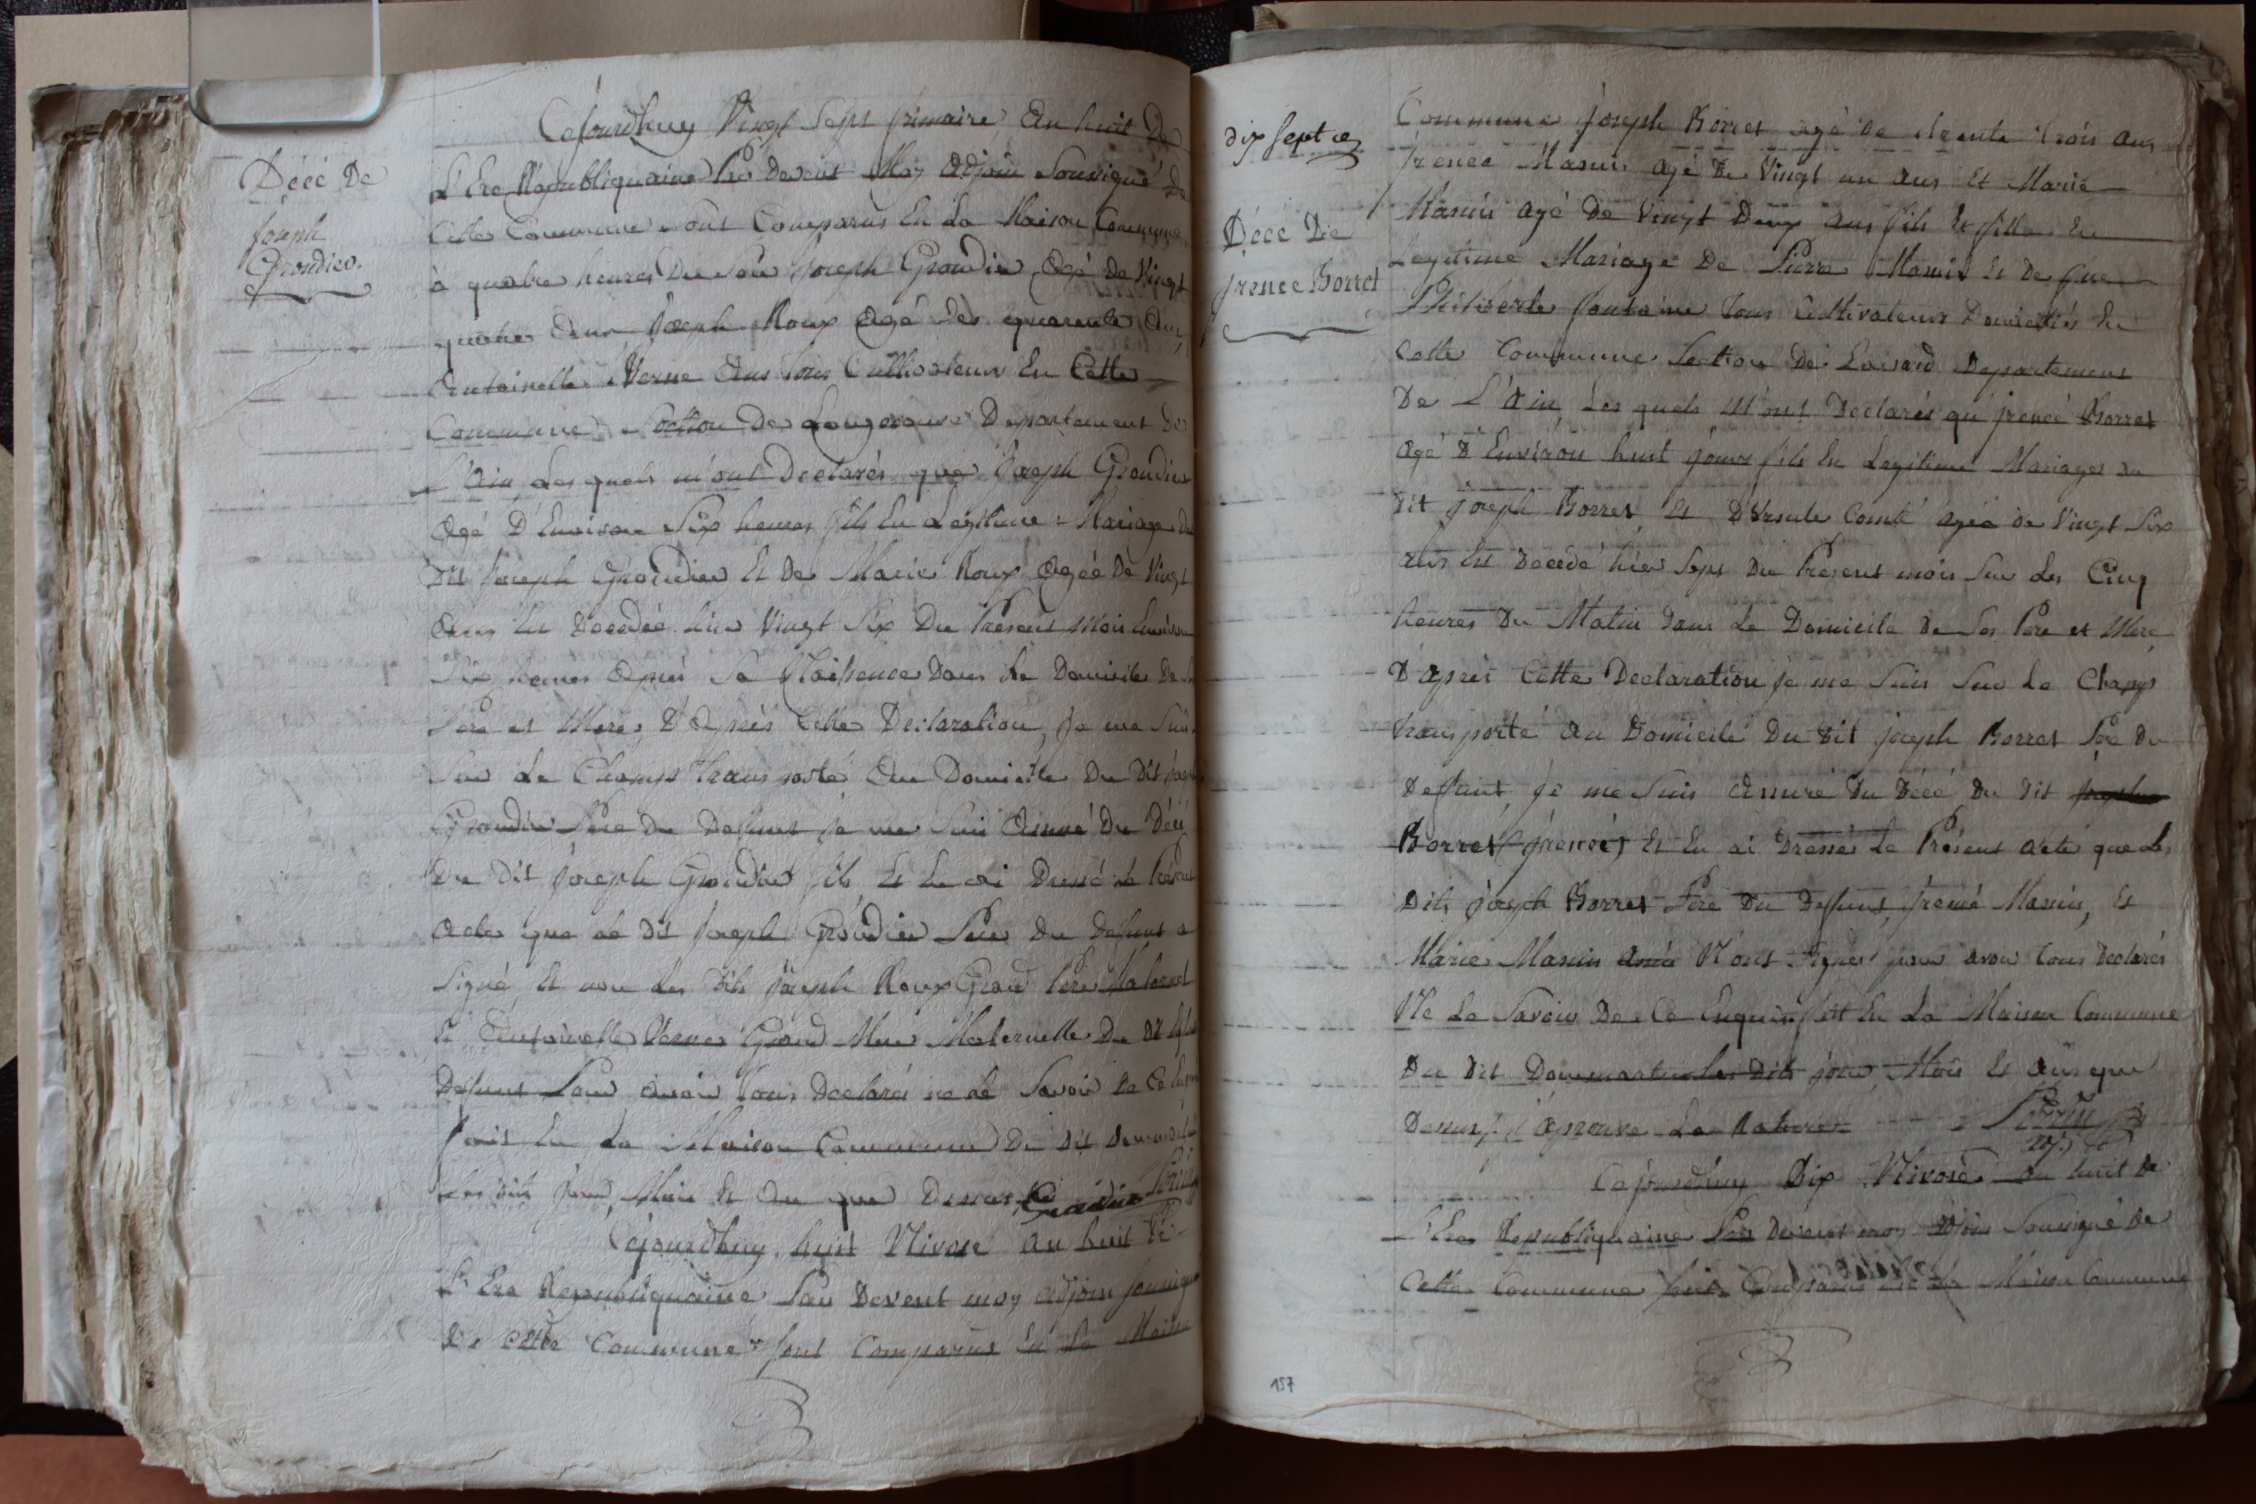 Décé De
joseph
Groudier.
Cejourdhuy Vingt Sept frimaire An huit De
L'Ere Républiquaine Par devent Moy Adjoin Sousigné De
Cette Commune sont Comparus En La Maison Commune
à quatre heures Du soir Joseph Groudier Agé De Vingt
quatre Ans, Joseph Roux Agé Des quarente Ans,
Antoinette Verne Ans tous Cultivateurs En Cette
Commune Section De Departement De
L'Ain Les quels m'ont Declarés que Joseph Groudier
Agé D'Environ Six heures fils En Légitime Mariage du
Dit Joseph Groudier Et De Marie Roux Agée De Vingt
Ans Est Decedée hier Vingt Six Du Présent Mois Environ
Six heures Après Sa Naissence Dans Le Domicile De
Père et Mere, D'Après Cette Declaration, Je me Suis
Sur Le Champs transporté Au Domicille Du Dit
Groudier Père Du Defunt Je me Suis Assuré Du Décé
Du Dit Joseph Groudier fils Et En ai Dressé Le Présent
Acte que le Dit Joseph Groudier Père Du defunt a
Signé, Et non Les Dits Joseph Roux Grand Père Maternel
Et Antoinette Verne Grand Mere Maternelle Du Dit
Defunt Pour avoir tous Declarés ne Le Savoir De Ce
fait En La Maison Commune Du Dit
Les Dits jour, Mois Et An que Dessus Groudier
Cejourdhuy huit Nivose An huit De
L'Ere Republiquaine Par Devent moy adjoin sousigné
De Cette Commune sont Comparus En La Maison
dix sept
Décé De
frencé Borret
Commune Joseph Borret agé de trente trois ans
frencé Manin agé De Vingt un Ans Et Marie
Manin agé De Vingt Deux ans fils Et fille En
Legitime Mariage De Pierre Manin Et De
Philiberte fontaine tous Cultivateurs Domiciliés En
Cette Commune Section De Departement
De L'Ain Les quels M'ont Declarés qu'frencé Borret
Agé D'Environ huit jours fils En Legitime Mariage du
Dit Joseph Borret Et D'Ursule Comte Agée De Vingt Six
ans Est Decedé hier Sept Du Présent mois Sur Les Cinq
heures Du Matin Dans Le Domicile De Ses Pere et Mere
D'après Cette Declaration je me Suis Sur Le Champs
transporté Au Domicile Du Dit Joseph Borret Père Du
Defunt, Je me Suis Assuré Du Décé Du Dit
Borret frencé Et En ai Dressé Le Présent Acte que Les
Dits Joseph Borret Père Du Defunt, frencé Manin, Et
Marie Manin N'ont Signés pour avoir tous Declarés
Ne Le Savoir De Ce Enquis fait En La Maison Commune
Du Dit Les Dits jour, Mois Et An que
Dessus, J'aprouve La Rature
Cejourdhuy Dix Nivose an huit De
L'Ere Republiquaine Par Devent moy Adjoin Sousigné De
Cette Commune Sont Comparus En La Maison Commune
157